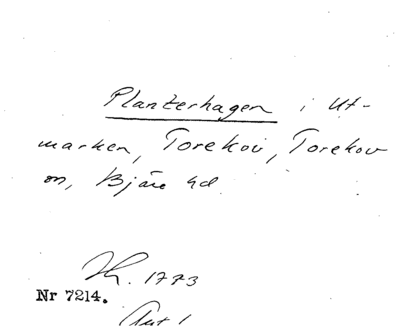 Planterhagen i Ut-
marken, Torekov, Torekov
sn, Bjäre hd
Kt. 1773
Nr 7214.
Akt 1